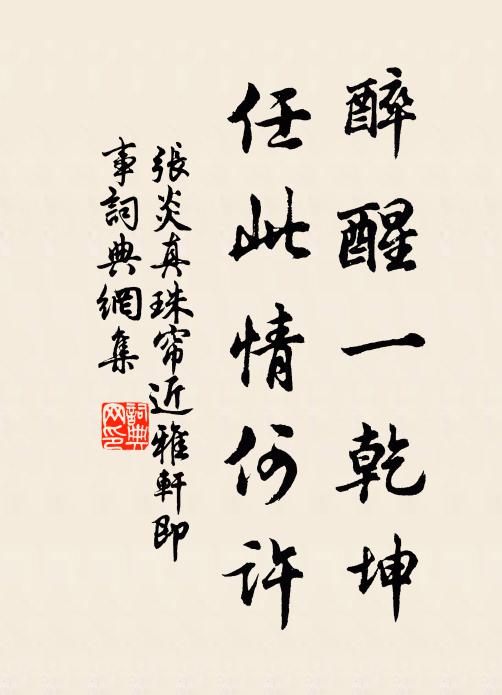 醉醒一乾坤
任此情何许
張炎真珠帘近雅軒即
事詞典網集
詞典
网印